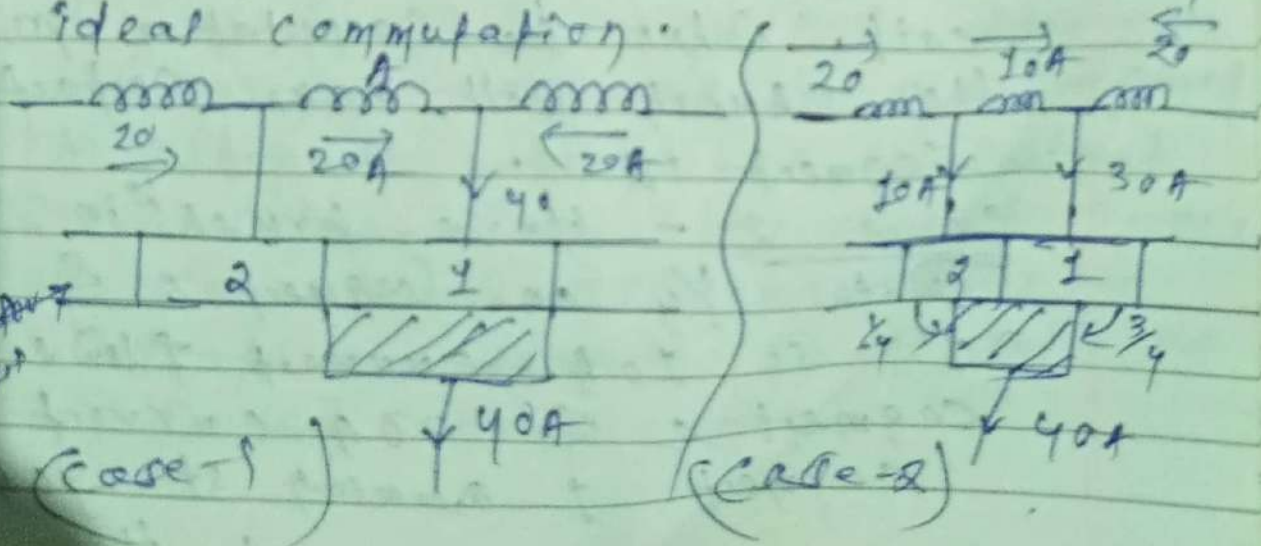 ideal commutation.
A
20 20A 20A
40
2 1
40A
(Case-1)
20 10A 20
10A 30A
2 1
1/4 3/4
40A
(Case-2)